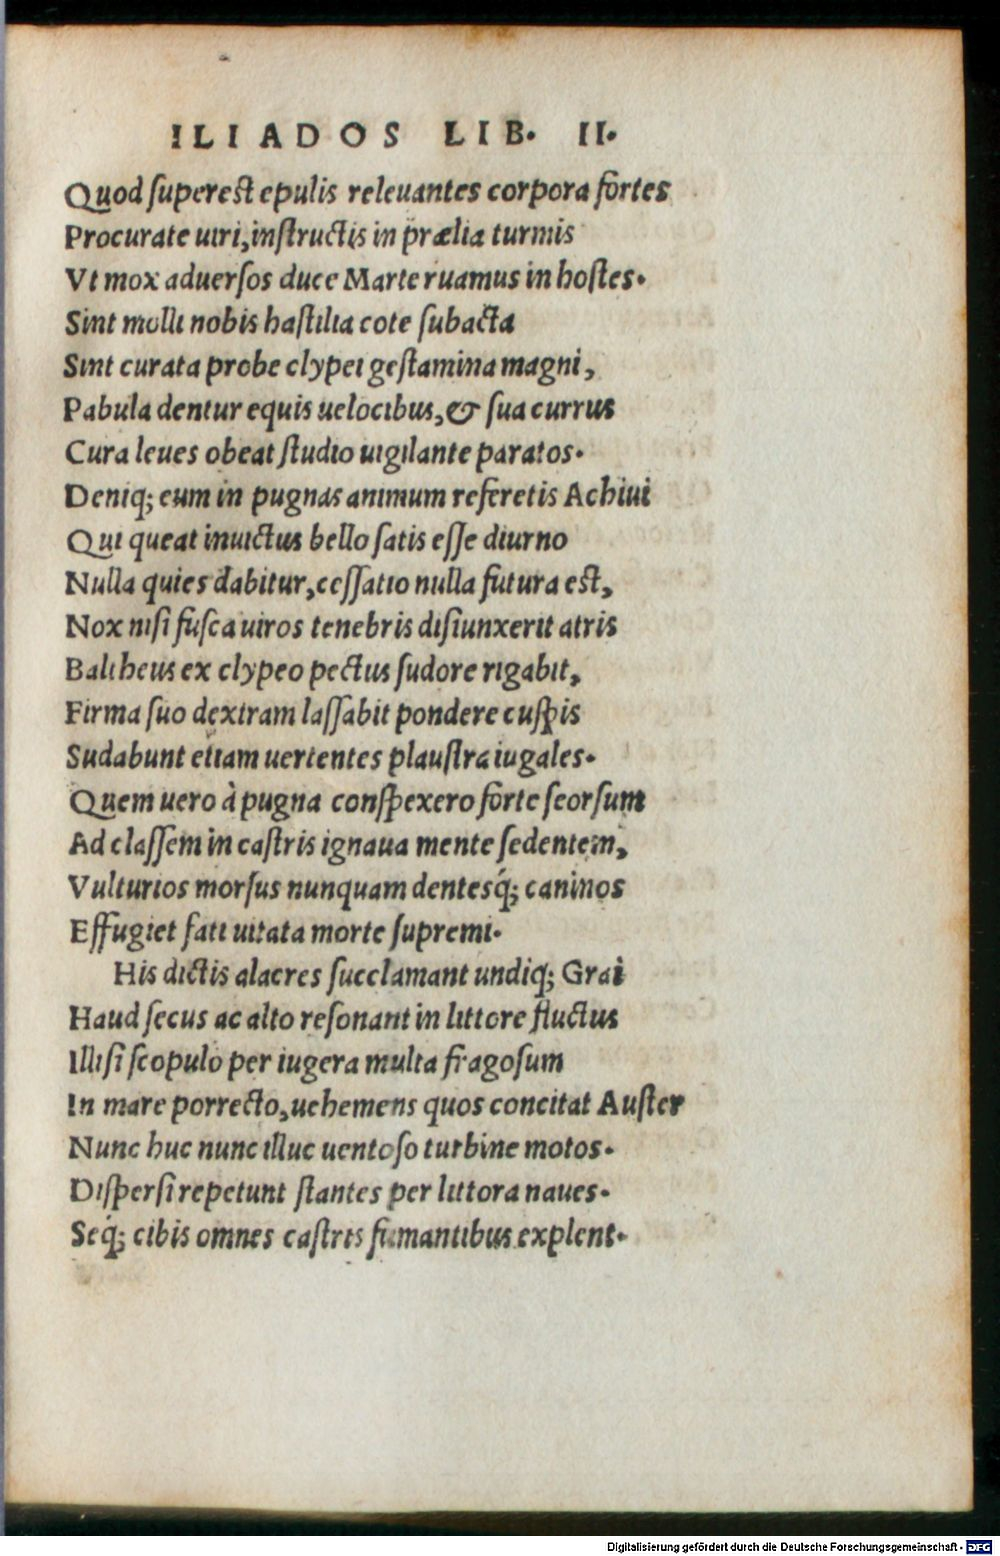 ILIADOS LIB. II.
Quod superest epulis releuantes corpora fortes
Procurate uiri, instructis in prælia turmis
Vt mox aduersos duce Marte ruamus in hostes.
Sint molli nobis hastilia cote subacta
Sint curata probe clypei gestamina magni,
Pabula dentur equis uelocibus, & sua currus
Cura leues obeat studio uigilante paratos.
Deniq; eum in pugnas animum referetis Achiui
Qui queat inuictus bello satis esse diurno
Nulla quies dabitur, cessatio nulla futura est,
Nox nisi fusca uiros tenebris disiunxerit atris
Baltheus ex clypeo pectus sudore rigabit,
Firma suo dextram lassabit pondere cuspis
Sudabunt etiam uertentes plaustra iugales.
Quem uero à pugna conspexero forte seorsum
Ad classem in castris ignaua mente sedentem,
Vulturios morsus nunquam dentesq́; caninos
Effugiet fati uitata morte supremi.
His dictis alacres succlamant undiq; Grai
Haud secus ac alto resonant in littore fluctus
Illisi scopulo per iugera multa fragosum
In mare porrecto, uehemens quos concitat Auster
Nunc huc nunc illuc uentoso turbine motos.
Dispersi repetunt stantes per littora naues.
Seq́; cibis omnes castris fumantibus explent.
Digitalisierung gefördert durch die Deutsche Forschungsgemeinschaft - DFG